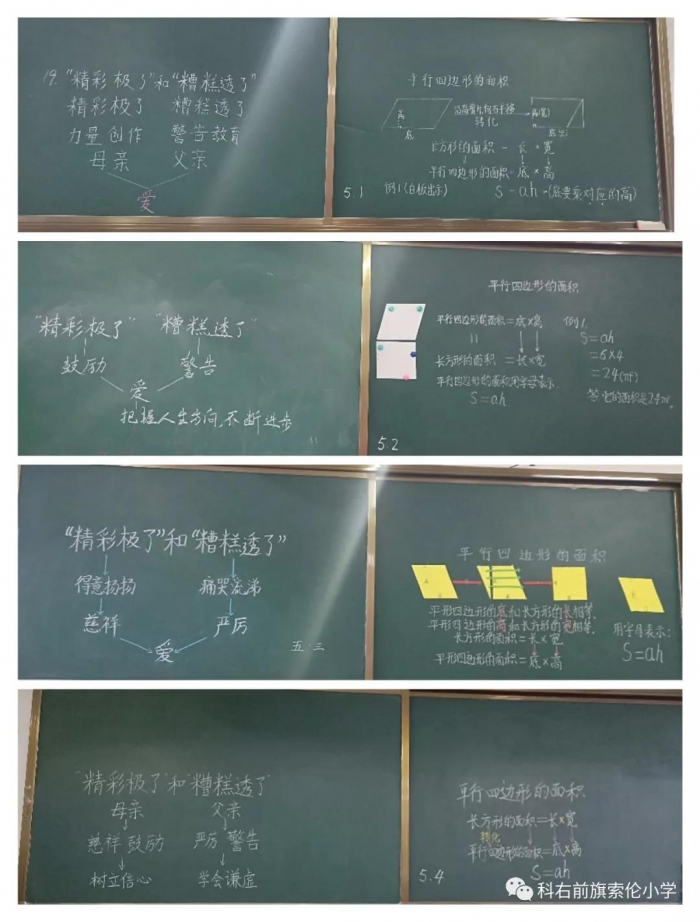 19. "精彩极了"和"糟糕透了"
精彩极了 糟糕透了
力量 创作 警告 教育
母亲 父亲
爱
平行四边形的面积
高
底
转化
长方形的面积 = 长 × 宽
平行四边形的面积 = 底 × 高
5.1 例1(白板出示)
S = ah (底要乘对应的高)
"精彩极了" "糟糕透了"
鼓励 警告
爱
把握人生方向,不断进步
平行四边形的面积
平行四边形的面积=底×高 例1.
长方形的面积=长×宽
平行四边形的面积用字母表示
S=ah
S=ah
=6×4
=24(㎡)
答:它的面积是24㎡.
5.2
"精彩极了"和"糟糕透了"
得意扬扬 痛哭流涕
慈祥 严厉
爱
五·三
平行四边形的面积
平形四边形的底和长方形的长相等.
平形四边形的高和长方形的宽相等.
长方形的面积=长×宽
平形四边形的面积=底×高
用字母表示:
S=ah
"精彩极了"和"糟糕透了"
母亲 父亲
慈祥 鼓励 严厉 警告
树立信心 学会谦虚
平行四边形的面积
长方形的面积=长×宽
转化
平行四边形的面积=底×高
S=ah
5.4
科右前旗索伦小学